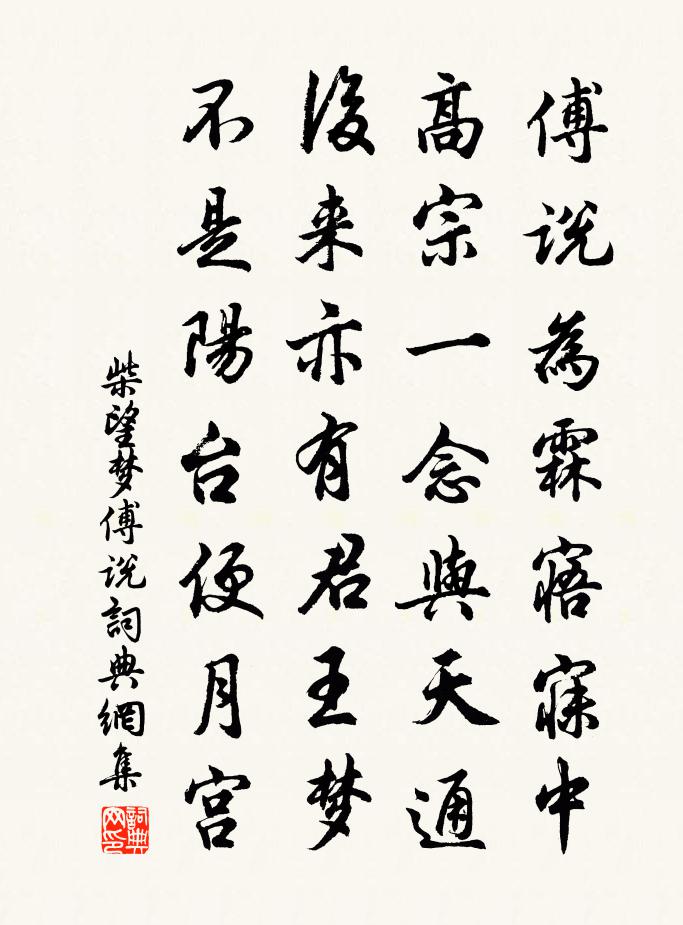 傅说為霖寤寐中
高宗一念與天通
後来亦有君王梦
不是陽台便月宫
柴望梦傅说詞典網集
詞典网印